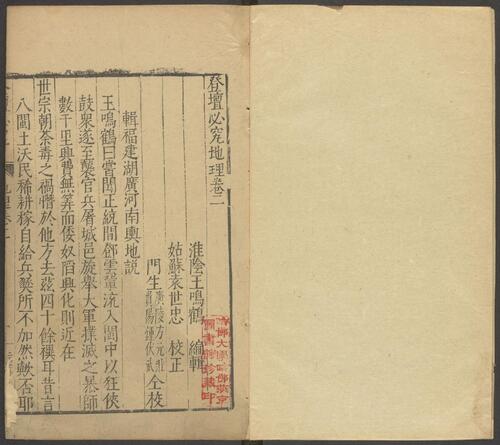 登壇必究地理卷二
淮陰王鳴鶴 編輯
姑蘇袁世忠 校正
門生 廣陵方元壯
仝校
輯福建湖廣河南輿地說
王鳴鶴曰嘗聞正統間鄧雲輩流入閩中以狂俠
鼓衆遂至襲官兵屠城邑旋舉大軍撲滅之暴師
數千里興費無筭而倭奴蹈興化則近在
世宗朝荼毒之禍憯於他方去茲四十餘禩耳昔言
八閩土沃民稀耕稼自給兵燹所不加然歟否耶